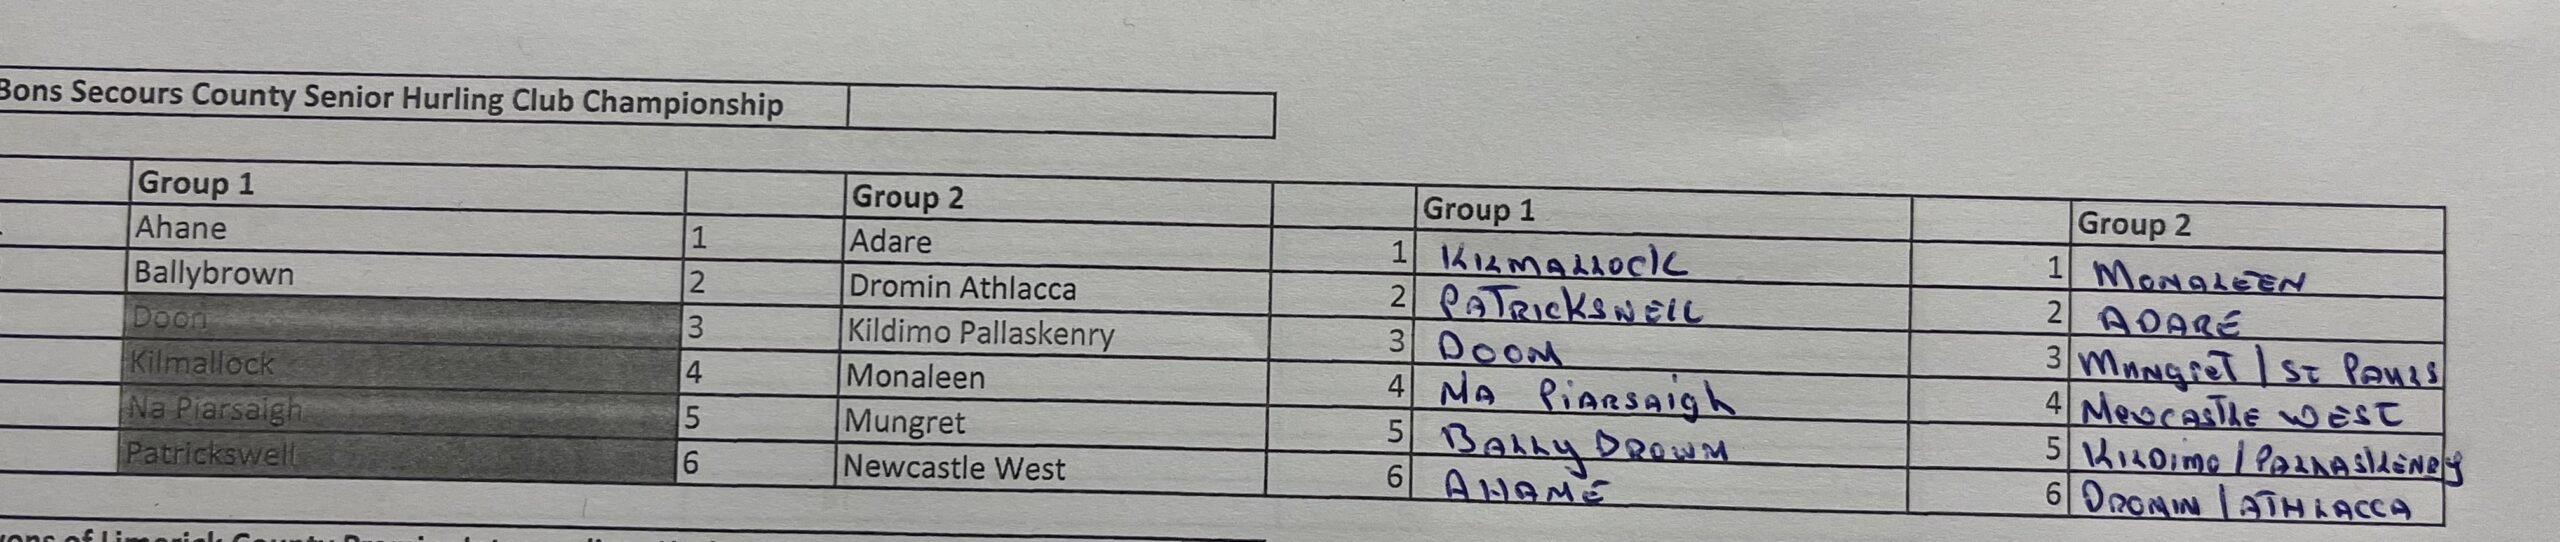 Bons Secours County Senior Hurling Club Championship
Group 1 Group 2 Group 1 Group 2
Ahane 1 Adare 1 KILMALLOCK 1 MONALEEN
Ballybrown 2 Dromin Athlacca 2 PATRICKSWELL 2 ADARE
Doon 3 Kildimo Pallaskenry 3 DOON 3 MUNGRET / ST PAULS
Kilmallock 4 Monaleen 4 NA PIARSAIGH 4 NEWCASTLE WEST
Na Piarsaigh 5 Mungret 5 BALLY BROWN 5 KILDIMO / PALLASKENRY
Patrickswell 6 Newcastle West 6 AHANE 6 DROMIN / ATHLACCA